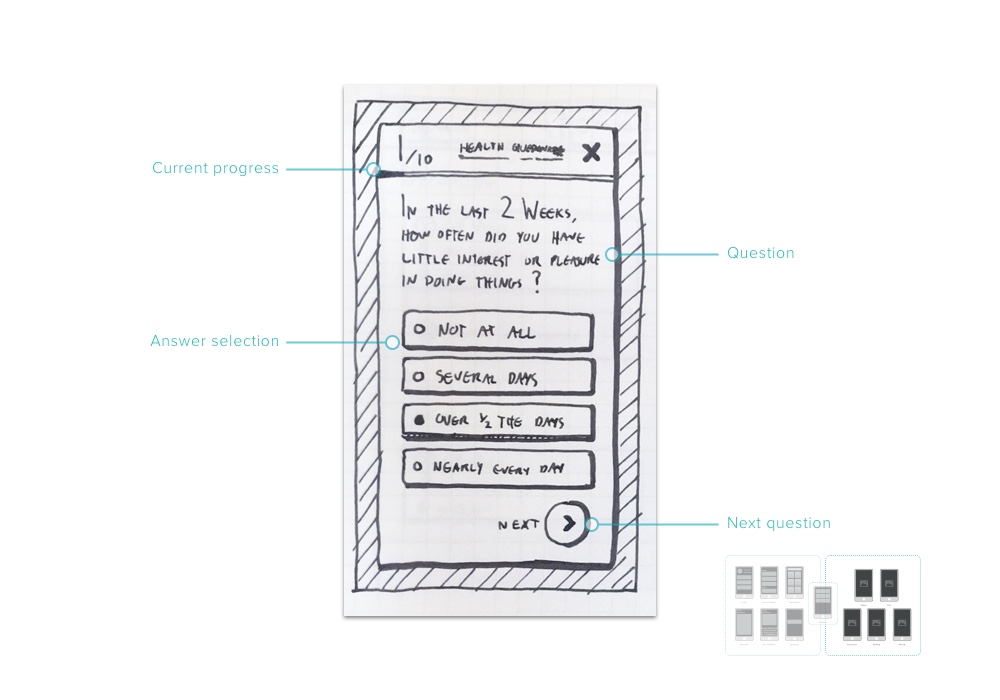 1/10
HEALTH
Current progress
IN THE LAST 2 WEEKS,
HOW OFTEN DID YOU HAVE
LITTLE INTEREST OR PLEASURE
IN DOING THINGS ?
Question
NOT AT ALL
Answer selection
SEVERAL DAYS
OVER 1/2 THE DAYS
NEARLY EVERY DAY
NEXT
Next question